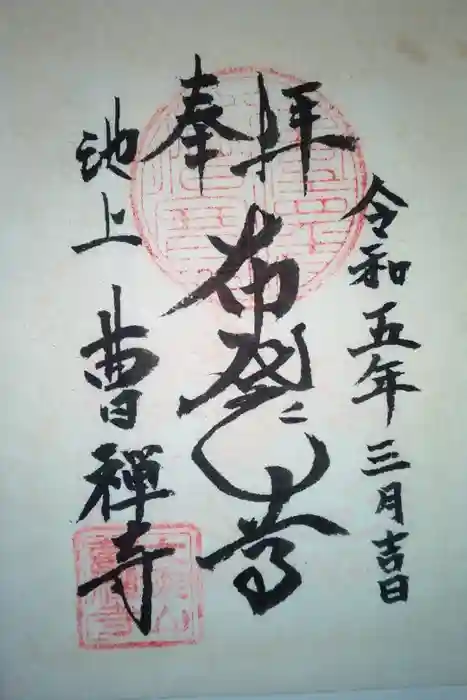 奉拝
令和五年三月吉日
布袋尊
池上 曹禅寺